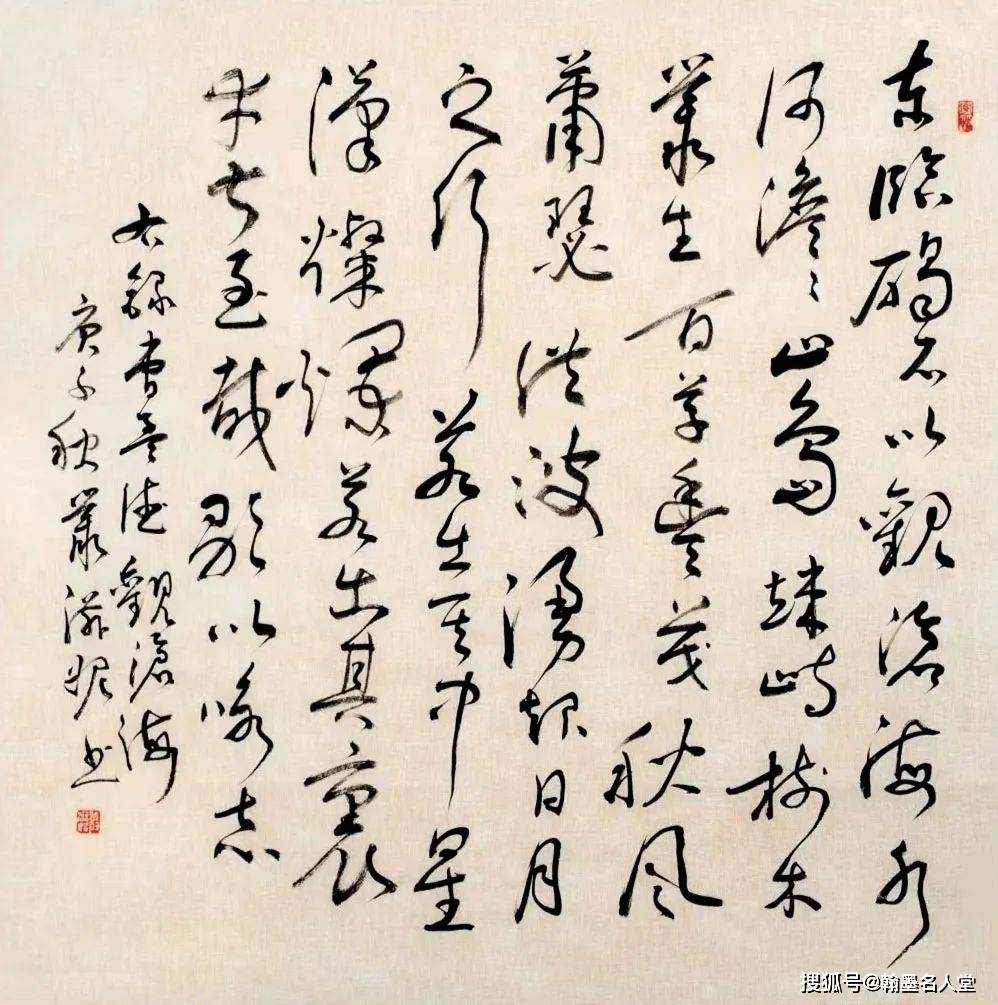 東臨碣石以觀滄海水
何澹々山島竦峙樹木
叢生百草豐茂秋風
蕭瑟洪波湧起日月
之行若出其中星
漢燦爛若出其裏
幸甚至哉歌以詠志
右錄曹孟德觀滄海
庚子秋叢滋書
搜狐号@翰墨名人堂